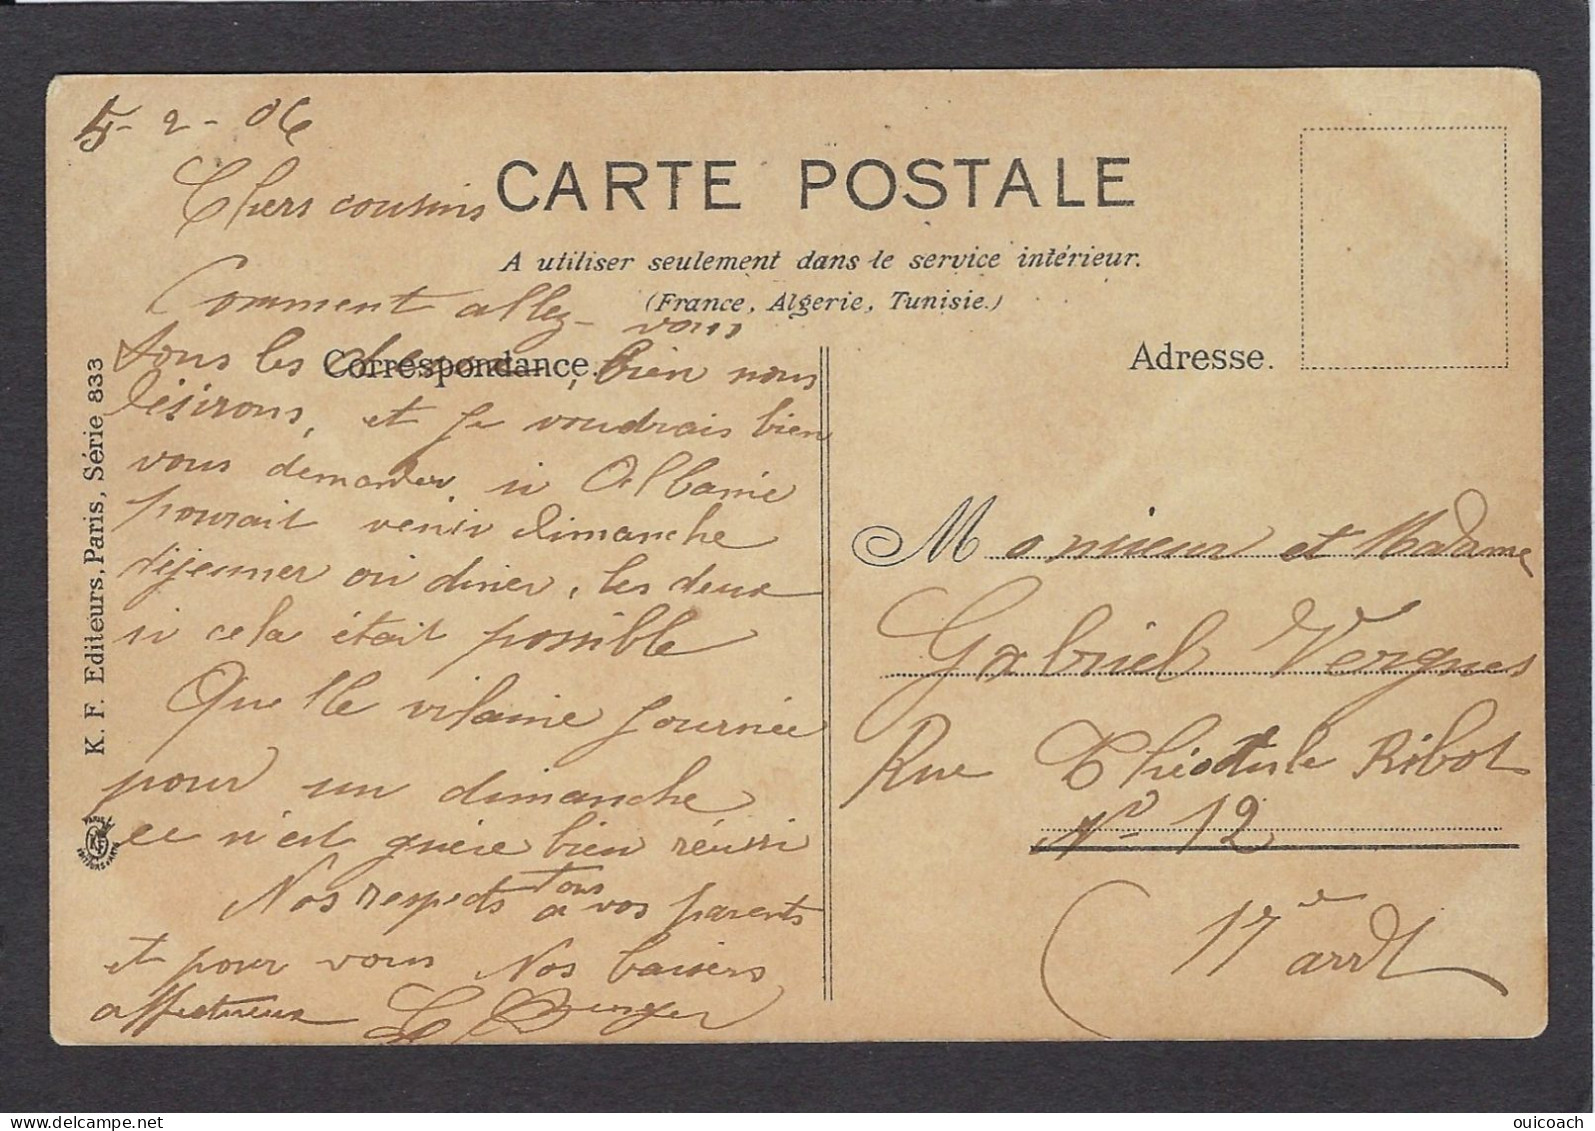 5-2-06
Chers cousins
CARTE POSTALE
A utiliser seulement dans le service intérieur.
(France, Algerie, Tunisie.)
Correspondance.
Adresse.
Comment allez-vous
tous les deux, bien nous
désirons, et je voudrais bien
vous demander si Albanie
pourait venir dimanche
déjeuner ou diner, les deux
si cela était possible
Quelle vilaine journée
pour un dimanche
ce n'est guère bien réussi
Nos respects tous à vos parents
et pour vous Nos baisers
affectueux
Monsieur et Madame
Gabriel Vergnes
Rue Théodule Ribot
No 12
17e arrdt
K. F. Editeurs, Paris, Série 833
ouicoach